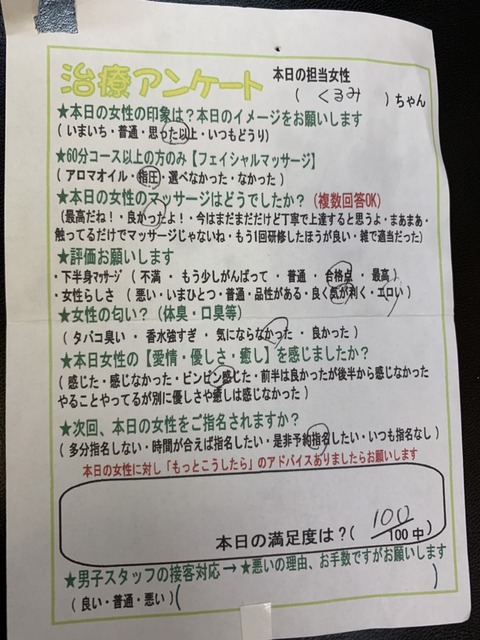 治療アンケート
本日の担当女性
( くるみ )ちゃん
★本日の女性の印象は？本日のイメージをお願いします
( いまいち・普通・思った以上・いつもどうり)
★60分コース以上の方のみ【フェイシャルマッサージ】
( アロマオイル・指圧・選べなかった・なかった )
★本日の女性のマッサージはどうでしたか？(複数回答OK)
(最高だね！・良かったよ！・今はまだまだだけど丁寧で上達すると思うよ・まあまあ・
触ってるだけでマッサージじゃないね・もう1回研修したほうが良い・雑で適当だった)
★評価お願いします
・下半身マッサージ ( 不満 ・ もう少しがんばって ・ 普通 ・ 合格点 ・ 最高)
・女性らしさ ( 悪い・いまひとつ・普通・品性がある・良く気が利く・エロい )
★女性の匂い？(体臭・口臭等)
( タバコ臭い ・ 香水強すぎ ・ 気にならなかった ・ 良かった )
★本日女性の【愛情・優しさ・癒し】を感じましたか？
( 感じた・感じなかった・ビンビン感じた・前半は良かったが後半から感じなかった
やることやってるが別に優しさや癒しは感じなかった)
★次回、本日の女性をご指名されますか？
( 多分指名しない・時間が合えば指名したい・是非予約指名したい・いつも指名なし )
本日の女性に対し「もっとこうしたら」のアドバイスありましたらお願いします
本日の満足度は？( 100/100中 )
★男子スタッフの接客対応 → ★悪いの理由、お手数ですがお願いします
( 良い・普通・悪い )( )